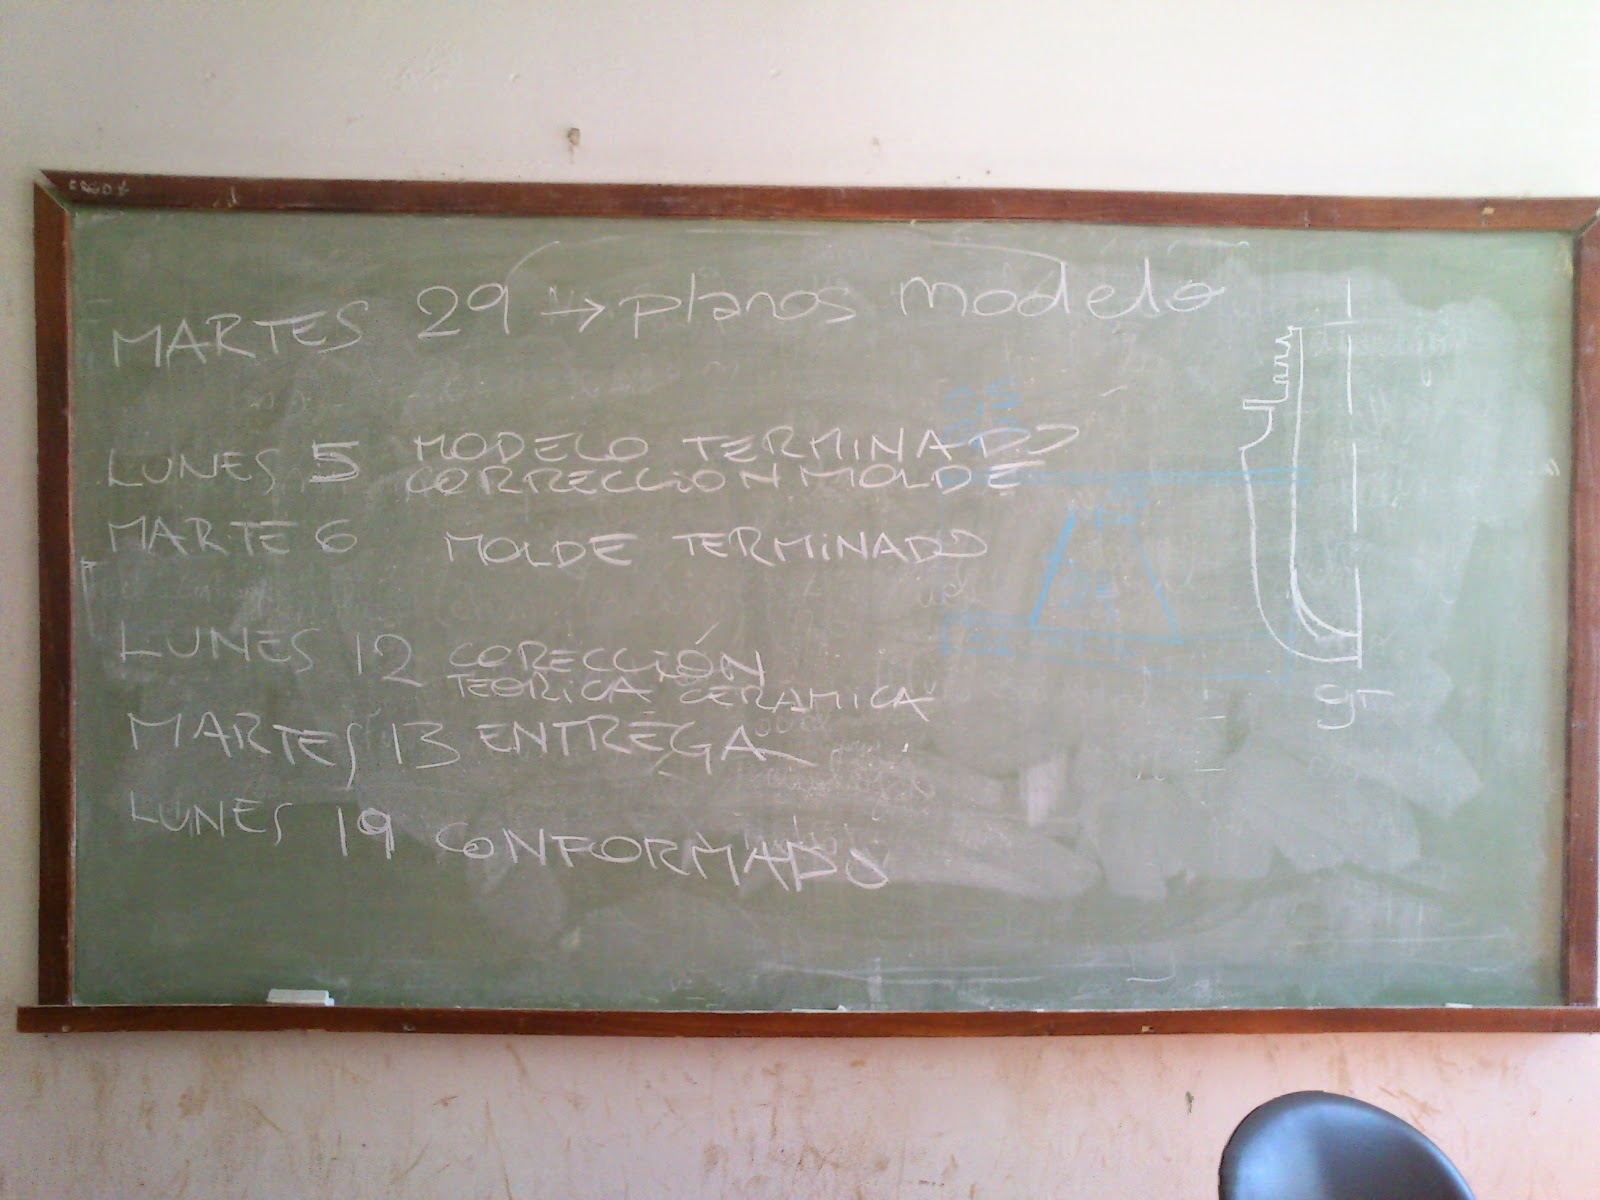 MARTES 29 → planos modelo
LUNES 5 MODELO TERMINADO
CORRECCION MOLDE
MARTE 6 MOLDE TERMINADO
LUNES 12 CORECCIÓN
TEORICA CERAMICA
MARTES 13 ENTREGA
LUNES 19 CONFORMADO